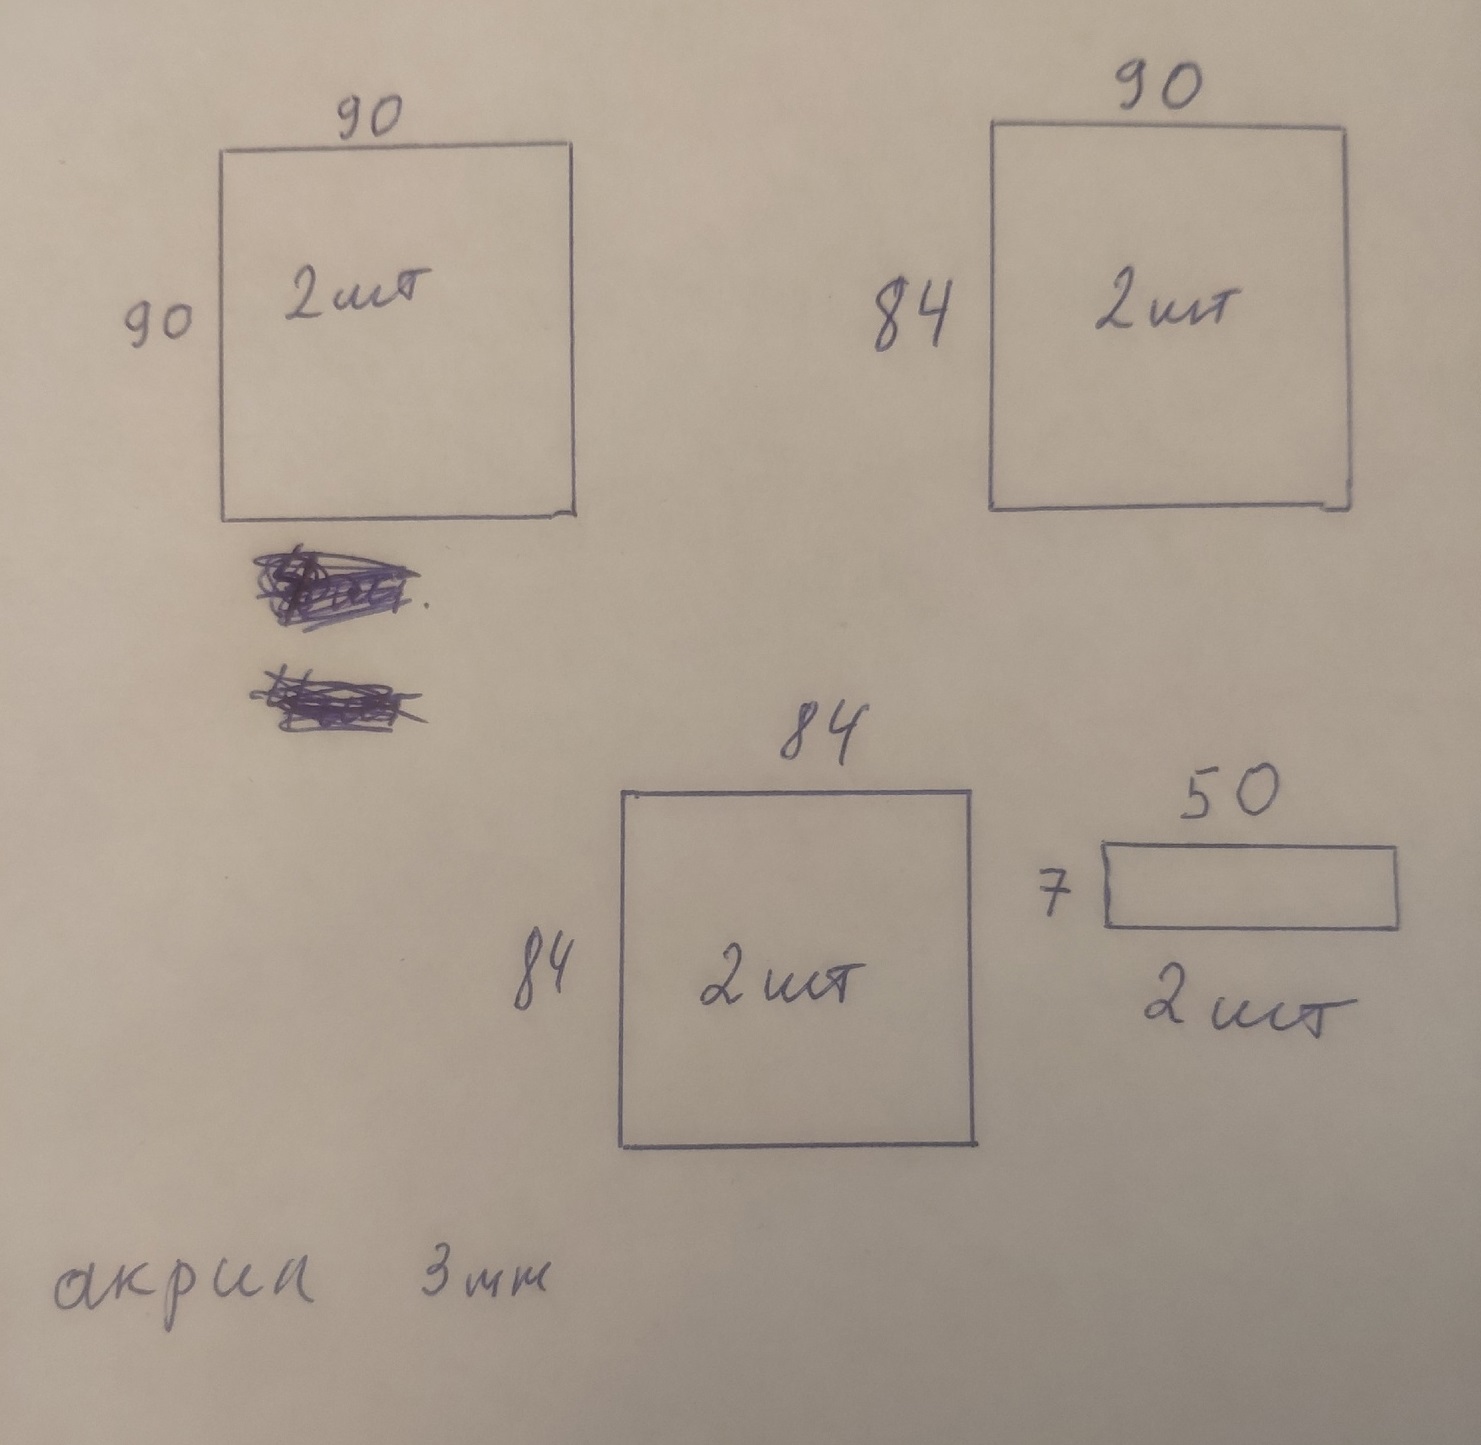 90
90
2 шт
90
84
2 шт
84
84
2 шт
50
7
2 шт
акрил 3мм